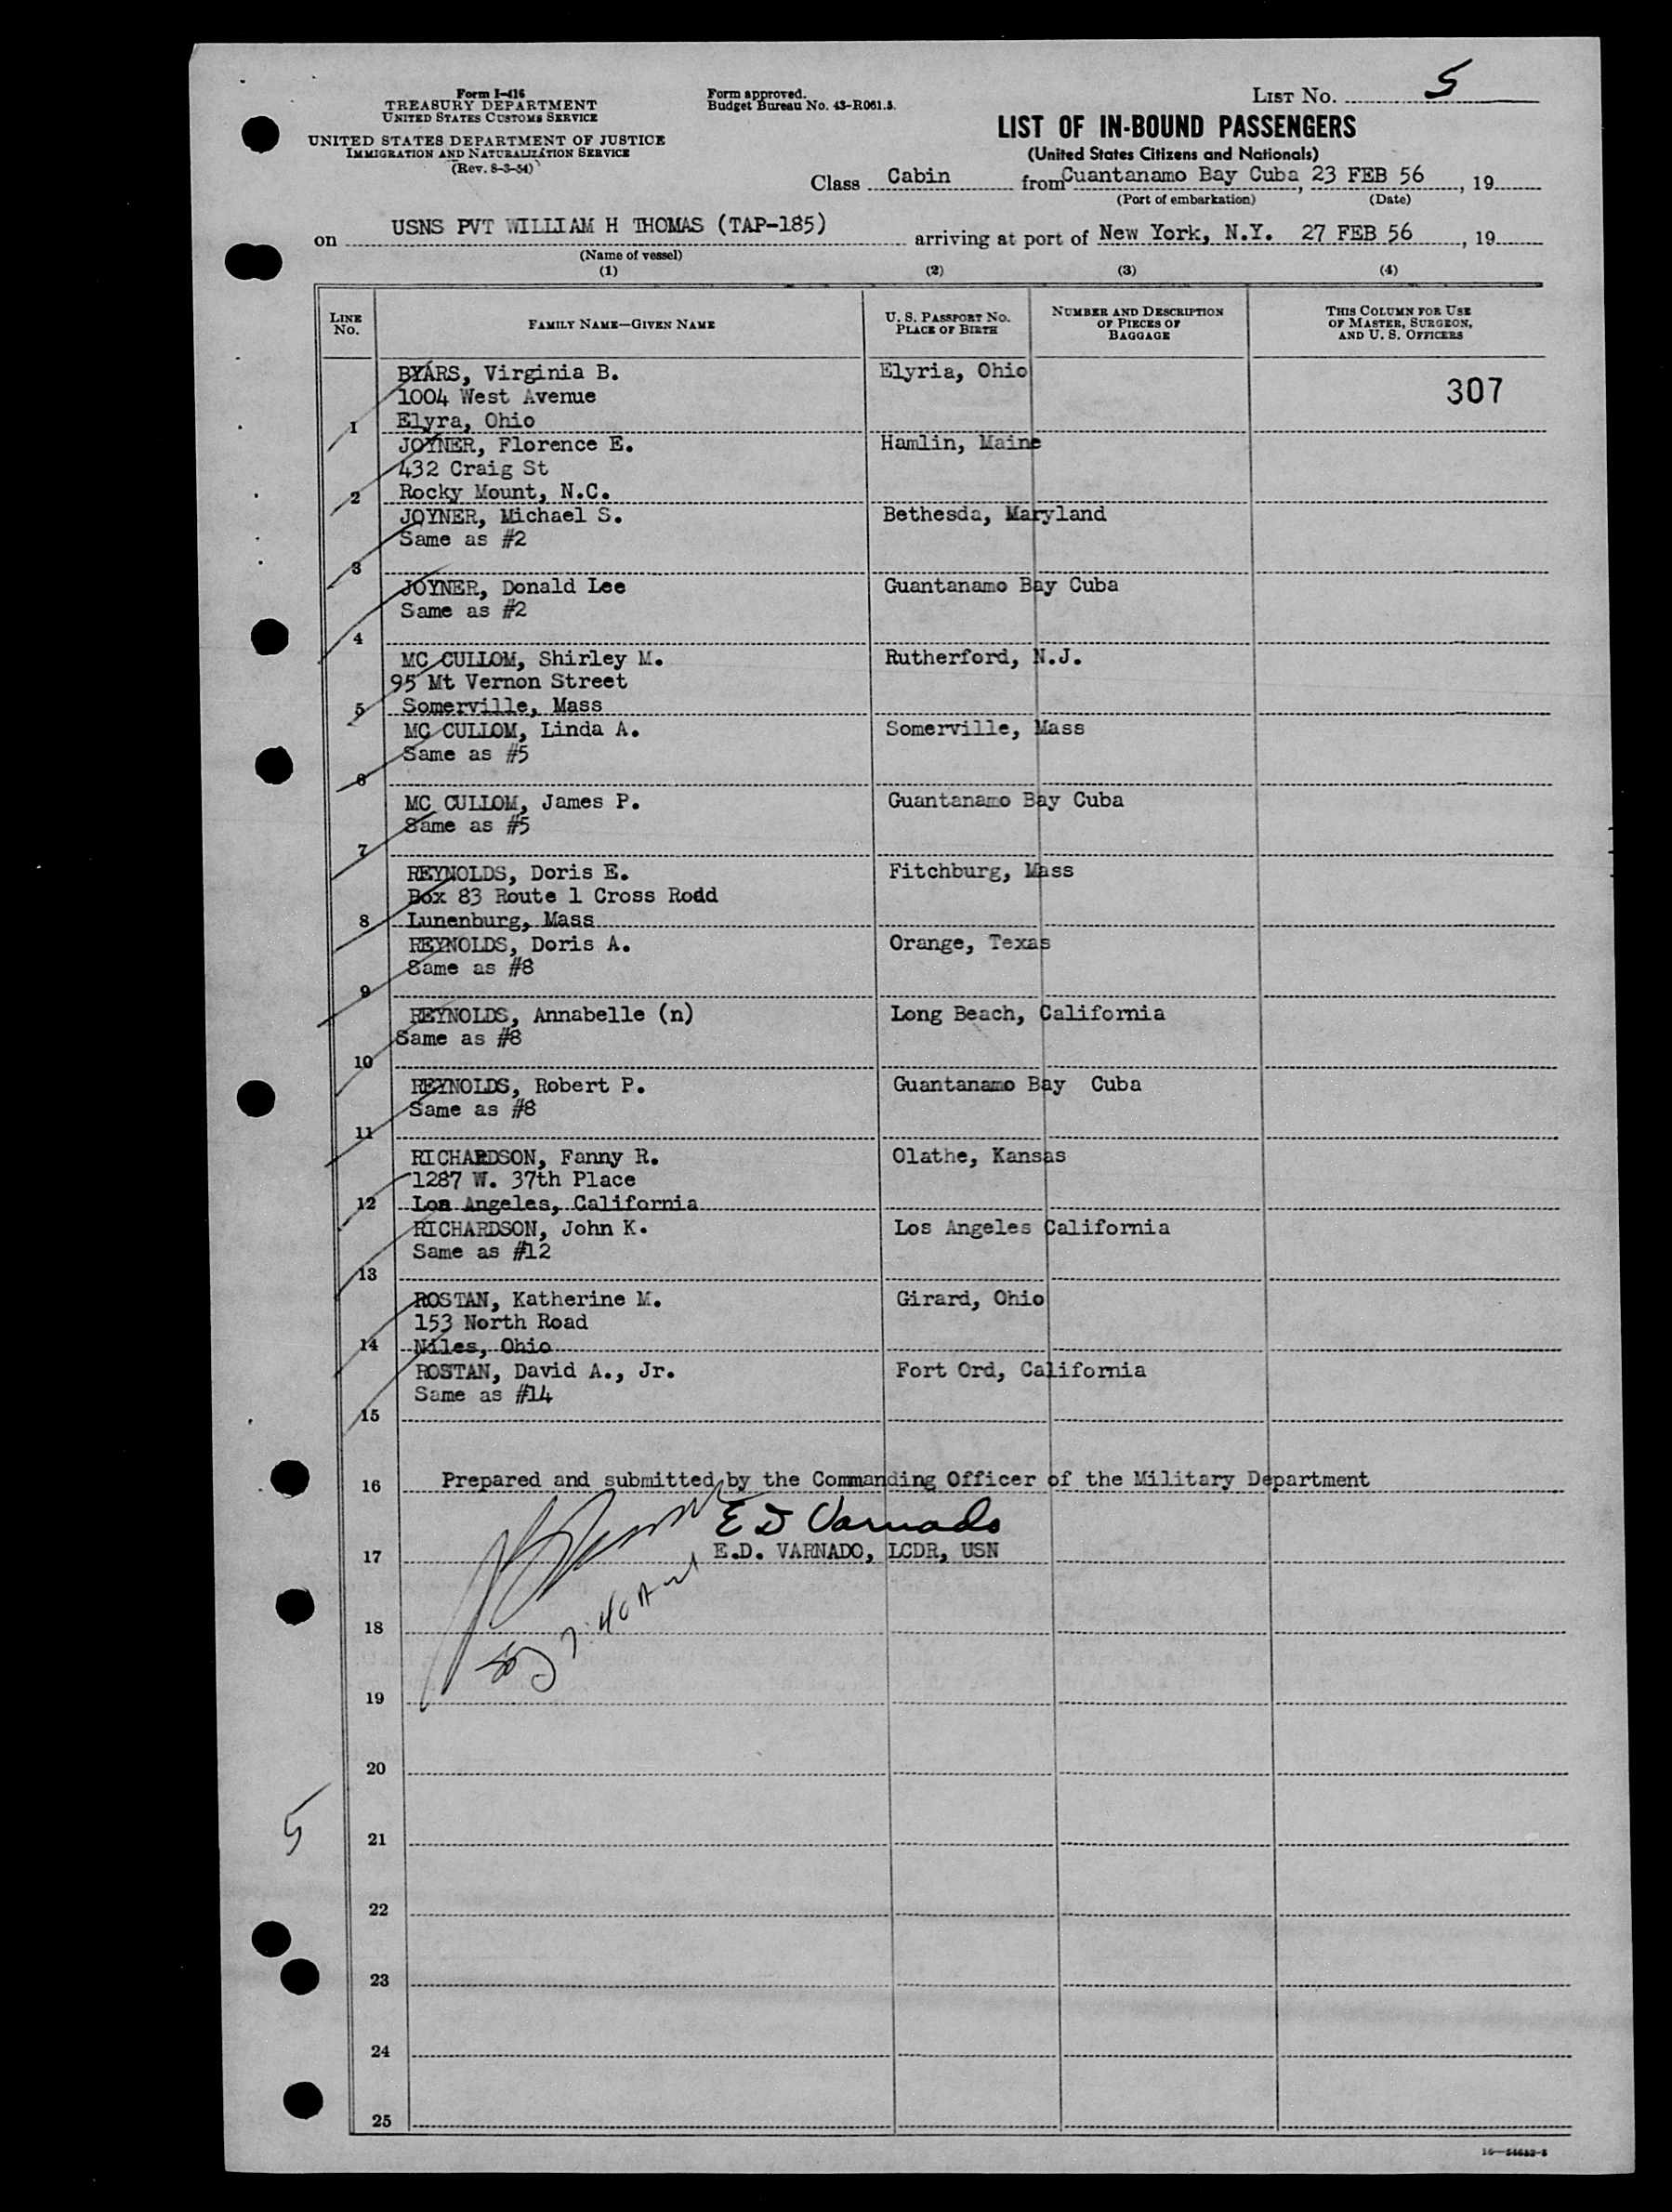 Form I-416
TREASURY DEPARTMENT
UNITED STATES CUSTOMS SERVICE
UNITED STATES DEPARTMENT OF JUSTICE
IMMIGRATION AND NATURALIZATION SERVICE
(Rev. 8-3-54)
Form approved.
Budget Bureau No. 43-R061.5.
LIST NO. 5
LIST OF IN-BOUND PASSENGERS
(United States Citizens and Nationals)
Class Cabin from Guantanamo Bay Cuba, 23 FEB 56, 19
(Port of embarkation) (Date)
on USNS PVT WILLIAM H THOMAS (TAP-185) arriving at port of New York, N.Y. 27 FEB 56, 19
(Name of vessel)
(1) (2) (3) (4)
LINE NO. FAMILY NAME—GIVEN NAME U. S. PASSPORT NO. PLACE OF BIRTH NUMBER AND DESCRIPTION OF PIECES OF BAGGAGE THIS COLUMN FOR USE OF MASTER, SURGEON, AND U. S. OFFICERS
BYARS, Virginia B. Elyria, Ohio
1004 West Avenue 307
1 Elyra, Ohio
JOYNER, Florence E. Hamlin, Maine
432 Craig St
2 Rocky Mount, N.C.
JOYNER, Michael S. Bethesda, Maryland
Same as #2
3
JOYNER, Donald Lee Guantanamo Bay Cuba
Same as #2
4
MC CULLOM, Shirley M. Rutherford, N.J.
95 Mt Vernon Street
5 Somerville, Mass
MC CULLOM, Linda A. Somerville, Mass
Same as #5
6
MC CULLOM, James P. Guantanamo Bay Cuba
Same as #5
7
REYNOLDS, Doris E. Fitchburg, Mass
Box 83 Route 1 Cross Rodd
8 Lunenburg, Mass
REYNOLDS, Doris A. Orange, Texas
Same as #8
9
REYNOLDS, Annabelle (n) Long Beach, California
Same as #8
10
REYNOLDS, Robert P. Guantanamo Bay Cuba
Same as #8
11
RICHARDSON, Fanny R. Olathe, Kansas
1287 W. 37th Place
12 Los Angeles, California
RICHARDSON, John K. Los Angeles California
Same as #12
13
ROSTAN, Katherine M. Girard, Ohio
153 North Road
14 Niles, Ohio
ROSTAN, David A., Jr. Fort Ord, California
Same as #14
15
16 Prepared and submitted by the Commanding Officer of the Military Department
E D Varnado
17 E.D. VARNADO, LCDR, USN
7:40 AM
18
19
20
5
21
22
23
24
25